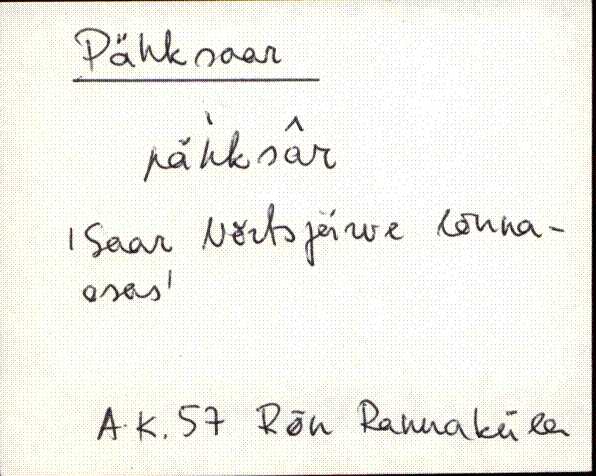 Pähksaar
pä̀hksâr
'Saar Võrtsjärve lõuna-
osas'
A.K. 57 Rõn Rannaküla